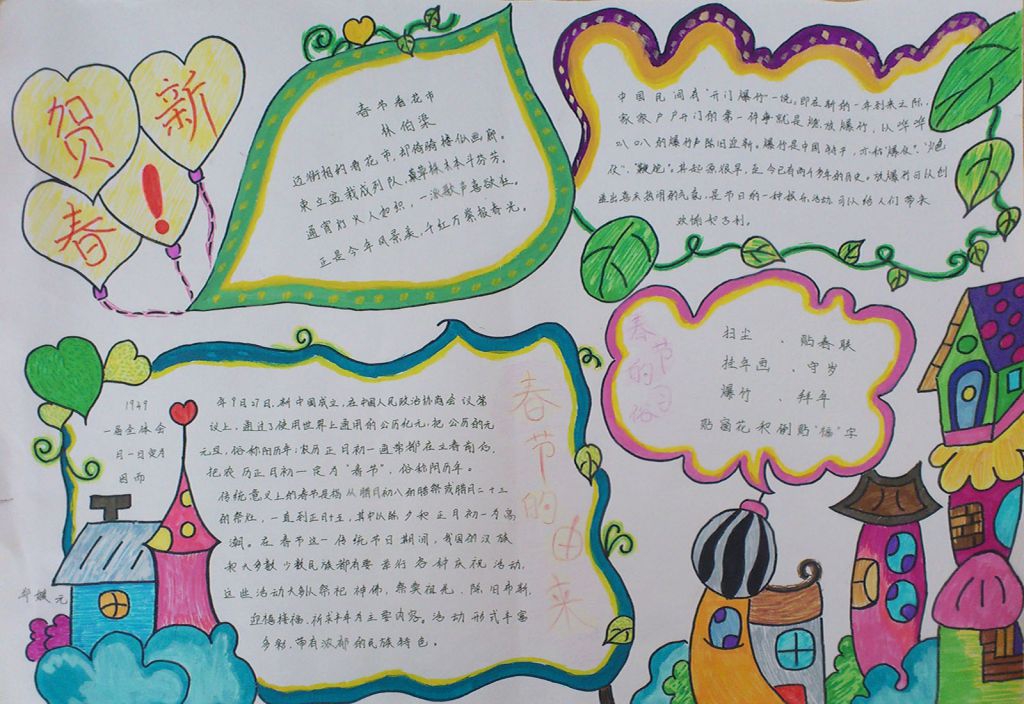 贺
新
春
!
春节看花市
林伯渠
迈街相约看花市,却倚骑楼似画廊。
束立盆栽成列队,草株木本斗芬芳。
通宵灯火人如织,一派歌声喜欲狂。
正是今年风景美,千红万紫报春光。
中国民间有"开门爆竹"一说。即在新的一年到来之际,
家家户户开门的第一件事就是燃放爆竹,以哗哗
叭叭的爆竹声除旧迎新。爆竹是中国特产,亦称"爆仗"、"炮
仗"、"鞭炮"。其起源很早,至今已有两千多年的历史。放爆竹可以创
造出喜庆热闹的气氛,是节日的一种娱乐活动,可以给人们带来
欢愉和吉利。
春节
的习
俗
扫尘、贴春联
挂年画、守岁
爆竹、拜年
贴窗花和倒贴"福"字
春节的由来
1949 年9月27日,新中国成立,在中国人民政治协商会议第
一届全体会议上,通过了使用世界上通用的公历纪元,把公历的元
月一日定为元旦,俗称阳历年;农历正月初一通常都在立春前后,
因而把农历正月初一定为"春节",俗称阴历年。
传统意义上的春节是指从腊月初八的腊祭或腊月二十三
的祭灶,一直到正月十五,其中以除夕和正月初一为高
潮。在春节这一传统节日期间,我国的汉族
和大多数少数民族都有要举行各种庆祝活动,
这些活动大多以祭祀神佛,祭奠祖先,除旧布新,
迎禧接福,祈求丰年为主要内容。活动形式丰富
多彩,带有浓郁的民族特色。